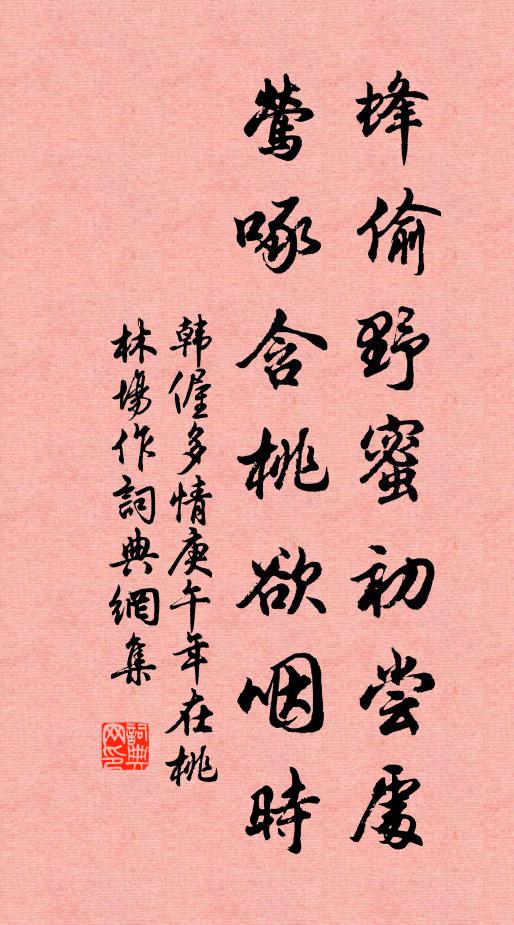 蜂偷野蜜初尝處
鶯啄含桃欲咽時
韩偓多情庚午年在桃
林場作詞典網集
詞典网印